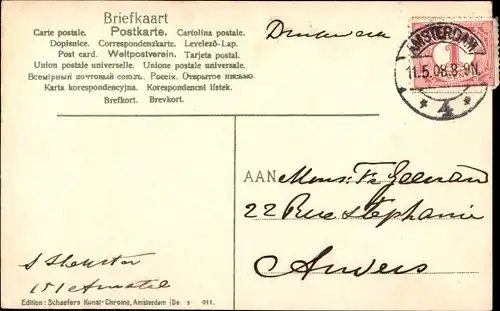 Briefkaart
Carte postale. Postkarte. Cartolina postale.
Dopisnice. Correspondenzkarte. Levelező-Lap.
Post card. Weltpostverein. Tarjeta postal.
Union postale universelle. Unione postale universale.
Всемірный почтовый союзъ. Россія. Открытое письмо.
Karta korespondencyjna. Korespondencni listek.
Brefkort. Brevkort.
AMSTERDAM
1
11.5.08.8-9N.
4
AAN Mons: Fr
22 Rue Stephanie
Anvers
151 Amstel
Edition: Schaefers Kunst-Chromo, Amsterdam